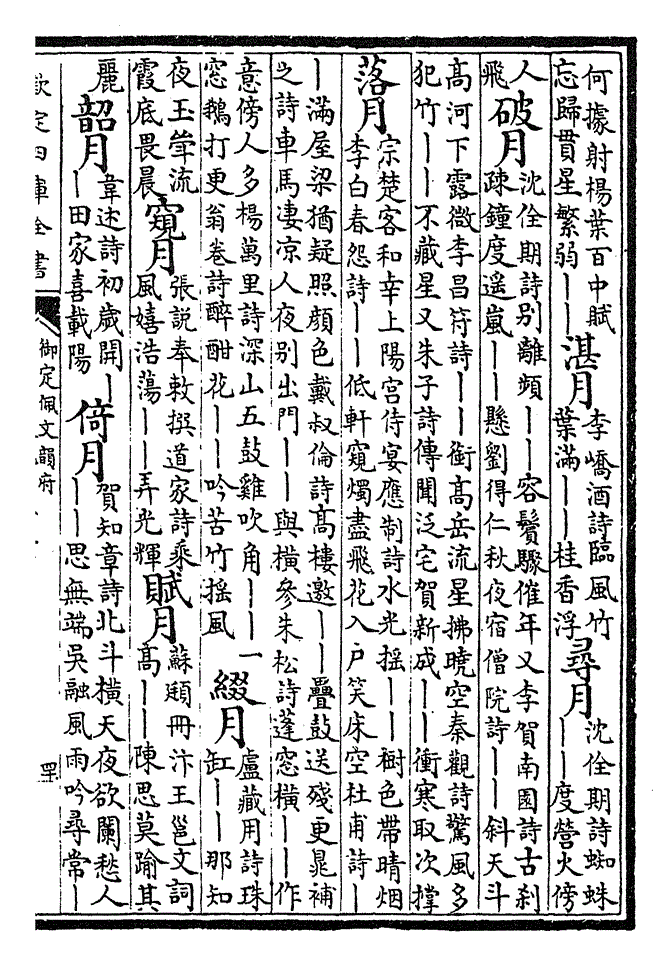 何據射楊葉百中賦
忘歸貫星繁弱｜｜
湛月
李嶠酒詩臨風竹
葉滿｜｜桂香浮
尋月
沈佺期詩蜘蛛
｜｜度螢火傍
人
飛
破月
沈佺期詩別離頻｜｜容鬢驟催年又李賀南園詩古刹
疎鐘度遥嵐｜｜懸劉得仁秋夜宿僧院詩｜｜斜天斗
高河下露微李昌符詩｜｜銜高岳流星拂曉空秦觀詩驚風多
犯竹｜｜不藏星又朱子詩傳聞泛宅賀新成｜｜衝寒取次撑
落月
宗楚客和幸上陽宮侍宴應制詩水光摇｜｜樹色帶晴烟
李白春怨詩｜｜低軒窺燭盡飛花入戶笑床空杜甫詩｜
｜滿屋梁猶疑照顔色戴叔倫詩髙樓邀｜｜疊鼓送殘更晁補
之詩車馬凄凉人夜别出門｜｜與橫參朱松詩蓬窓橫｜｜作
意傍人多楊萬里詩深山五鼓雞吹角｜｜一
窓鵝打更翁卷詩醉酣花｜｜吟苦竹摇風
綴月
盧藏用詩珠
缸｜｜那知
夜玉斝流
霞底畏晨
窺月
張説奉敕撰道家詩乘
風嬉浩蕩｜｜弄光輝
賦月
蘇頲冊汴王邕文詞
髙｜｜陳思莫踰其
麗
韶月
韋述詩初歲開｜
｜田家喜載陽
倚月
賀知章詩北斗橫天夜欲闌愁人
｜｜思無端吳融風雨吟尋常｜
欽定四庫全書
御定佩文韻府